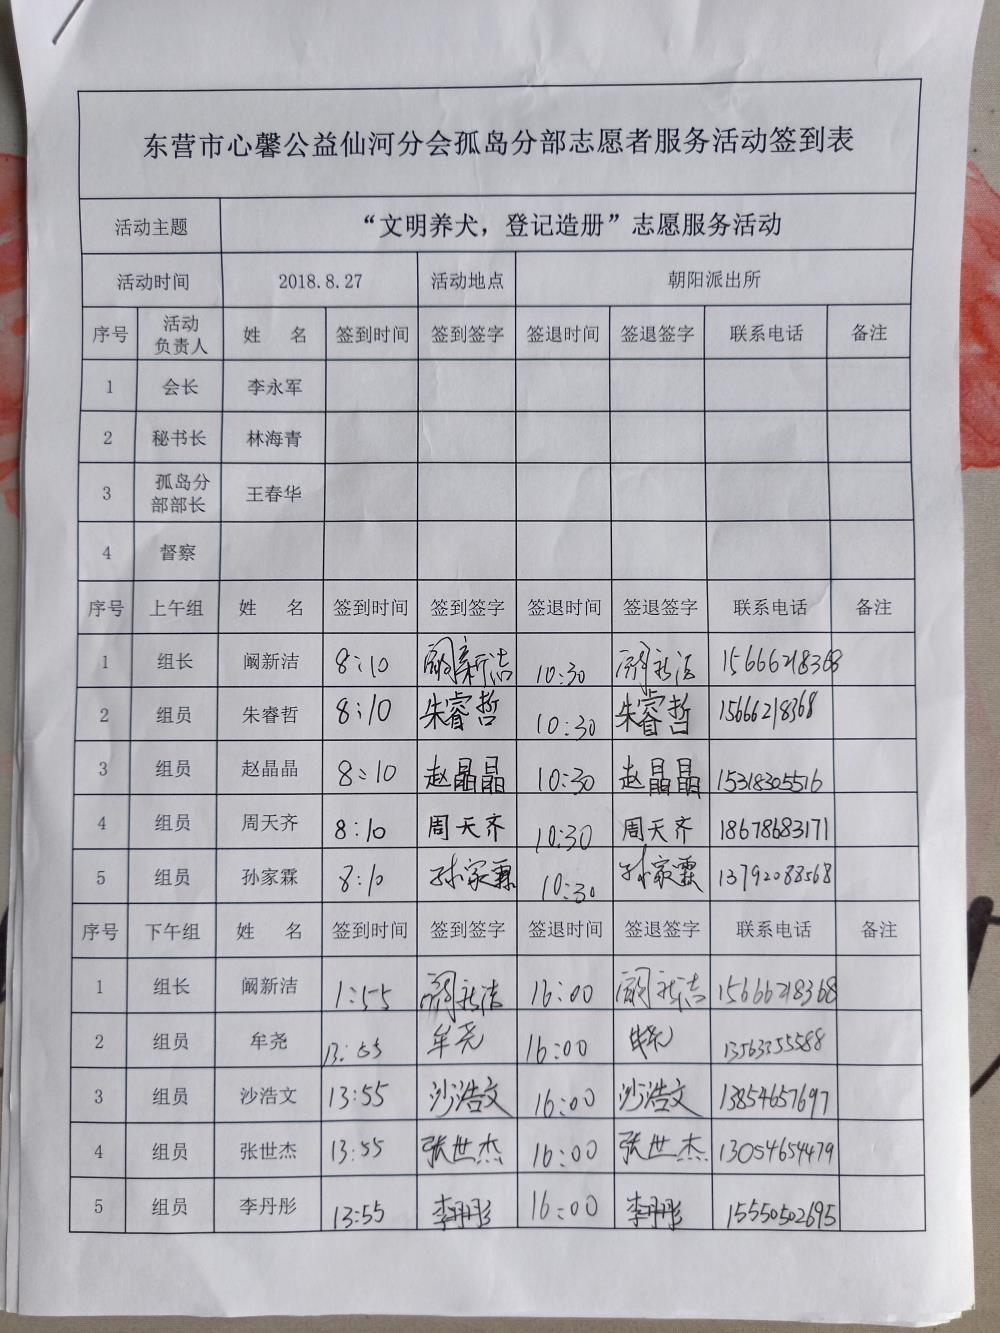 东营市心馨公益仙河分会孤岛分部志愿者服务活动签到表
活动主题 “文明养犬，登记造册”志愿服务活动
活动时间 2018.8.27 活动地点 朝阳派出所
序号 活动负责人 姓 名 签到时间 签到签字 签退时间 签退签字 联系电话 备注
1 会长 李永军
2 秘书长 林海青
3 孤岛分部部长 王春华
4 督察
序号 上午组 姓 名 签到时间 签到签字 签退时间 签退签字 联系电话 备注
1 组长 阚新洁 8:10 阚新洁 10:30 阚新洁 15666218368
2 组员 朱睿哲 8:10 朱睿哲 10:30 朱睿哲 15666218368
3 组员 赵晶晶 8:10 赵晶晶 10:30 赵晶晶 15318305516
4 组员 周天齐 8:10 周天齐 10:30 周天齐 18678683171
5 组员 孙家霖 8:10 孙家霖 10:30 孙家霖 13792088568
序号 下午组 姓 名 签到时间 签到签字 签退时间 签退签字 联系电话 备注
1 组长 阚新洁 1:55 阚新洁 16:00 阚新洁 15666218368
2 组员 牟尧 13:55 牟尧 16:00 牟尧
3 组员 沙浩文 13:55 沙浩文 16:00 沙浩文 13854657697
4 组员 张世杰 13:55 张世杰 16:00 张世杰 13054654479
5 组员 李丹彤 13:55 李丹彤 16:00 李丹彤 15550502695